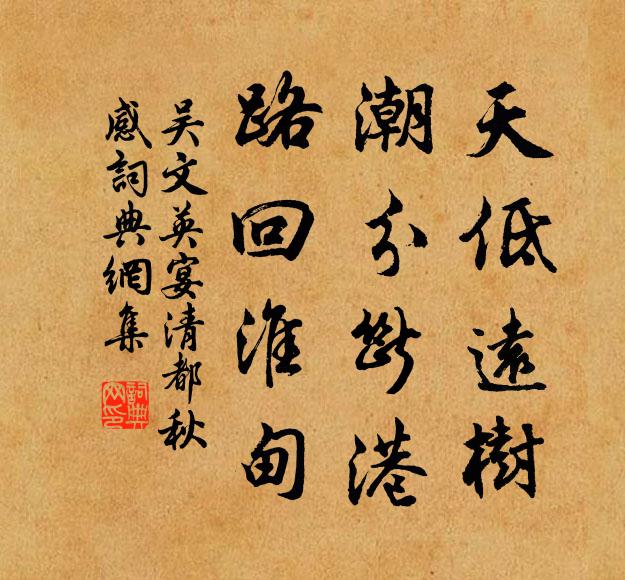 天低遠樹
潮分斷港
路回淮甸
吴文英宴清都秋
感詞典網集
詞典網印